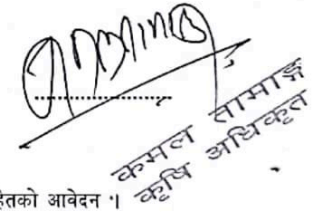 कमल तामाङ्ग
कृषि अधिकृत
हेतको आवेदन ।